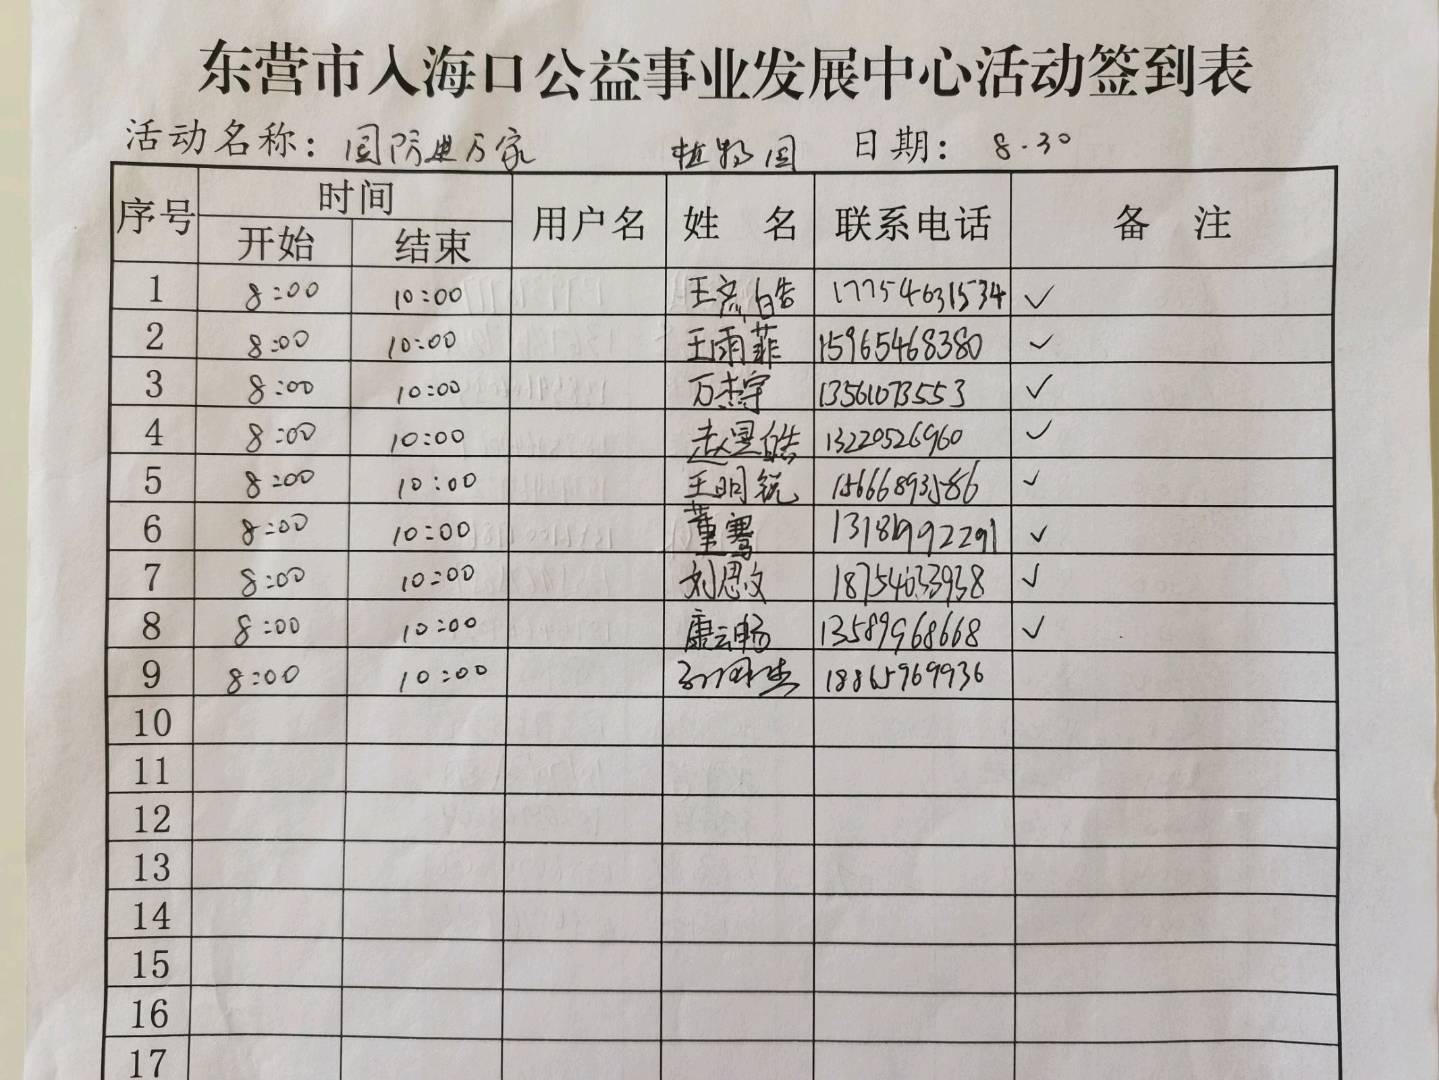 东营市入海口公益事业发展中心活动签到表
活动名称：国防进万家 植物园 日期：8.30
序号 时间 用户名 姓 名 联系电话 备 注
开始 结束
1 8:00 10:00 17754631534 ✓
2 8:00 10:00 王雨菲 15965468380 ✓
3 8:00 10:00 万杰宇 13561073553 ✓
4 8:00 10:00 赵昱皓 13220526960 ✓
5 8:00 10:00 王明锐 15666893586 ✓
6 8:00 10:00 董骞 13181992291 ✓
7 8:00 10:00 刘思文 18754633938 ✓
8 8:00 10:00 康云畅 13589968668 ✓
9 8:00 10:00 18865969936
10
11
12
13
14
15
16
17